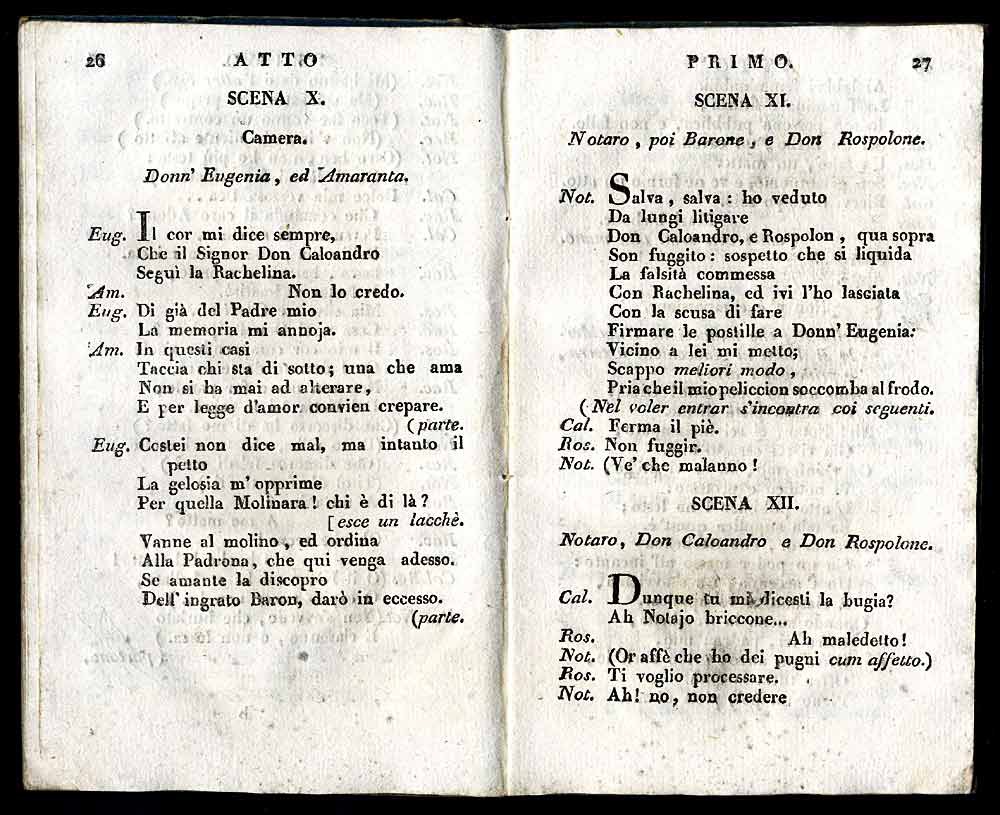 26 ATTO
SCENA X.
Camera.
Donn' Eugenia, ed Amaranta.
Eug. Il cor mi dice sempre,
Che il Signor Don Caloandro
Seguì la Rachelina.
Am. Non lo credo.
Eug. Di già del Padre mio
La memoria mi annoja.
Am. In questi casi
Taccia chi sta di sotto; una che ama
Non si ha mai ad alterare,
E per legge d'amor convien crepare.
(parte.
Eug. Costei non dice mal, ma intanto il
petto
La gelosia m'opprime
Per quella Molinara! chi è di là?
[esce un lacchè.
Vanne al molino, ed ordina
Alla Padrona, che qui venga adesso.
Se amante la discopro
Dell' ingrato Baron, darò in eccesso.
(parte.
PRIMO. 27
SCENA XI.
Notaro, poi Barone, e Don Rospolone.
Not. Salva, salva: ho veduto
Da lungi litigare
Don Caloandro, e Rospolon, qua sopra
Son fuggito: sospetto che si liquida
La falsità commessa
Con Rachelina, ed ivi l'ho lasciata
Con la scusa di fare
Firmare le postille a Donn' Eugenia:
Vicino a lei mi metto;
Scappo meliori modo,
Pria che il mio peliccion soccomba al frodo.
(Nel voler entrar s'incontra coi seguenti.
Cal. Ferma il piè.
Ros. Non fuggir.
Not. (Ve' che malanno!
SCENA XII.
Notaro, Don Caloandro e Don Rospolone.
Cal. Dunque tu mi dicesti la bugia?
Ah Notajo briccone...
Ros. Ah maledetto!
Not. (Or affè che ho dei pugni cum affetto.)
Ros. Ti voglio processare.
Not. Ah! no, non credere